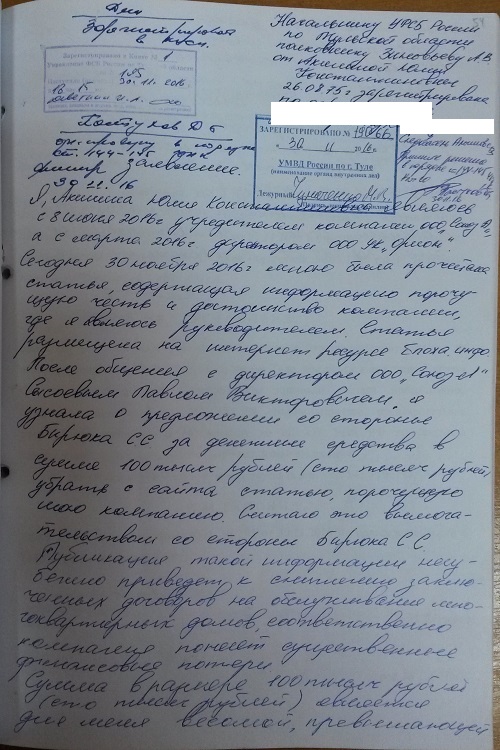 Начальнику УФСБ России
по Тульской области
полковнику
от Акишиной Юлии
Константиновны
26.08.75г зарегистрирована
Зарегистрировано в
30.11.2016
ЗАРЕГИСТРИРОВАНО №
« 30 » 11 2016 г.
УМВД России по г. Туле
(наименование органа внутренних дел)
Дежурный
в порядке
ст. 144-145 УПК
заявление.
30.11.16
Я, Акишина Юлия являюсь
с 8 июня 2016г учредителем компании ООО „Союз
а с марта 2016г директором ООО УК „Орион"
Сегодня 30 ноября 2016г мною была прочитана
статья, содержащая информацию пороча
щую честь и достоинство компании,
где я являюсь руководителем. Статья
размещена на интернет ресурсе Блоха инфо
После общения с директором ООО „Союз
Сысоевым Павлом Викторовичем, я
узнала о предложении со стороны
Бирюка СС за денежные средства в
сумме 100 тысяч рублей (сто тысяч рублей)
убрать с сайта статью, порочущую
мою компанию. Считаю это вымога-
тельством со стороны Бирюка СС.
Публикация такой информации неиз-
бежно приведет к снижению заклю-
ченных договоров на обслуживание мно-
гоквартирных домов, соответственно
компания понесет существенные
финансовые потери
Сумма в размере 100 тысяч рублей
(сто тысяч рублей) является
для меня весомой, превышающей